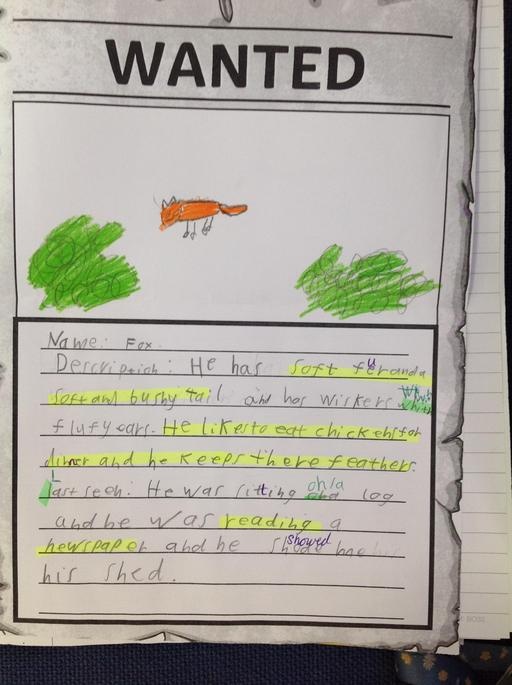 WANTED
Name: Fox
Description: He has soft fur and a
soft and bushy tail and has wiskers with white
flufy ears. He likes to eat chicken for
dinner and he keeps there feathers.
Last seen: He was sitting on a log
and he was reading a
newspaper and he showed me
his shed.